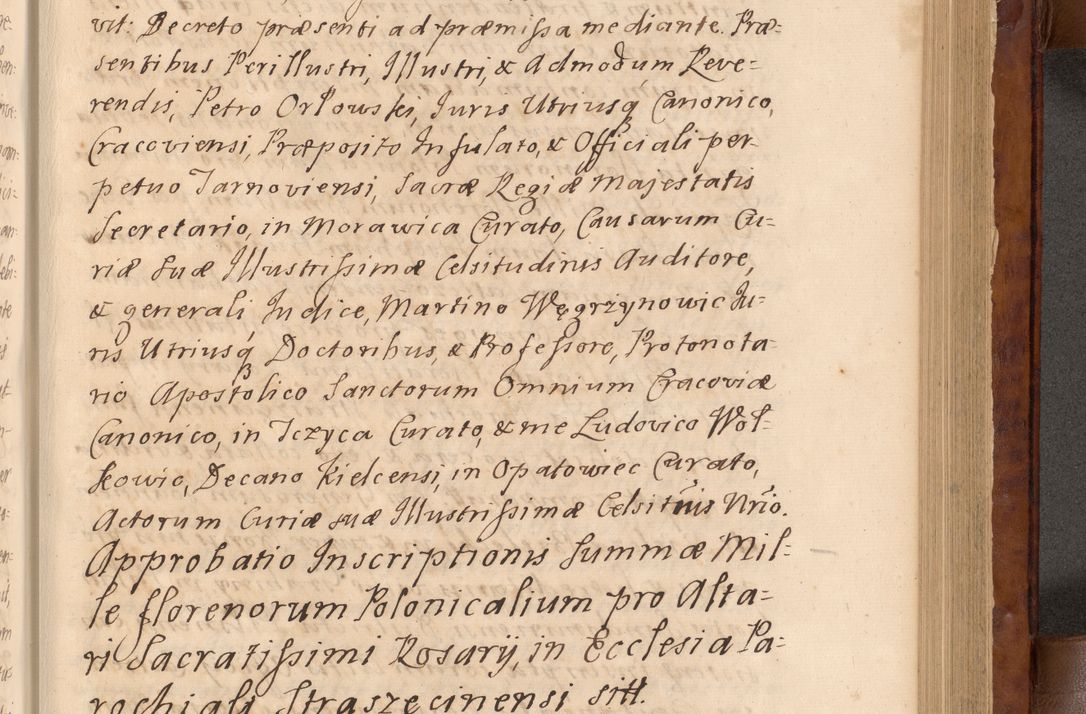 vit: Decreto præsenti ad præmissa mediante. Præ=
sentibus Perillustri, Illustri, & Admodum Reve=
rendis, Petro Orłowski, Iuris Utriusq Canonico,
Cracoviensi, Præposito Infulato, & Officiali per-
petuo Tarnoviensi, Sacræ Regiæ Majestatis
Secretario, in Morawica Curato, Causarum Cu=
riæ suæ Illustrissimæ Celsitudinis Auditore,
& generali Iudice, Martino Węgrzynowic Iu=
ris Utriusq́ Doctoribus, & Professore, Protonota
rio Apostolico Sanctorum Omnium Cracoviæ
Canonico, in Tczyca Curato, & me Ludovico Woł=
kowic, Decano Kielcensi, in Opatowiec Curato,
Actorum Curiæ suæ Illustrissimæ Celsitnis Nrio.
Approbatio Inscriptionis Summæ Mil=
le florenorum Polonicalium pro Alta=
ri Sacratissimi Rosarÿ, in Ecclesia Pa=
rochiali Straszęcinensi sitt.